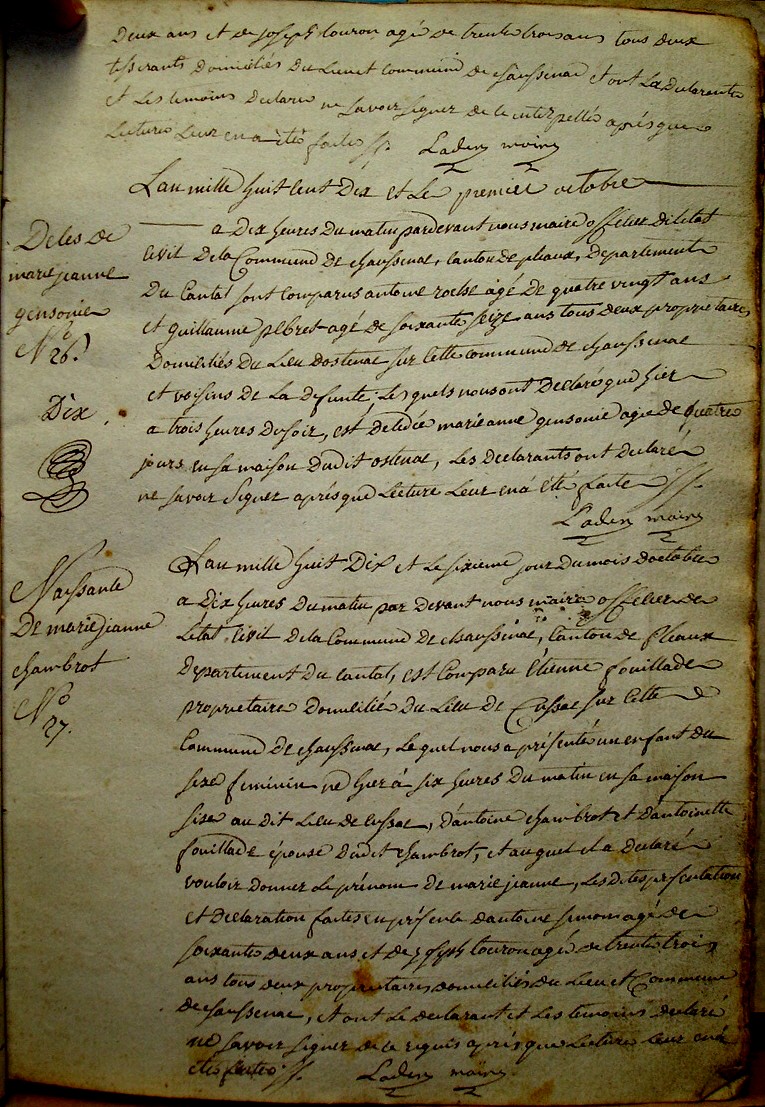 Deux ans et de joseph touron agé de trente trois ans tous deux
tisserants domiciliés du Lieu et Commune de chaussenac et ont La declarante
et Les temoins declaré ne savoir signer de ce interpellés aprés que
Lecture Leur en a été faite //. Laden maire
L'an mille huit cent Dix et Le premier octobre
a Dix heures du matin pardevant nous maire officier de l'etat
Civil de la Commune de chaussenac, canton de pleaux, departement
du Cantal sont Comparus antoine roche agé de quatre vingt ans
et guillaume pebrel agé de soixante seize ans tous deux proprietaires
Domiciliés du Lieu dostenac sur Cette commune de chaussenac
et voisins de La defunte, Lesquels nous ont Declaré que hier
a trois heures du soir, est decedée marieanne gensonie agée de quatre
jours en sa maison dudit ostenac, Les declarants ont declaré
ne savoir Signer aprés que Lecture Leur en a été faite //.
Laden maire
Deces de
marie jeanne
gensonie
No 26.
Dix
L'an mille huit Dix et Le sixieme jour du mois doctobre
a Dix heures du matin par devant nous maire officier de
L'etat Civil de la Commune de chaussenac, Canton de Pleaux
departement du cantal, est Comparu Étienne fouillade
proprietaire Domicilié du Lieu de Cussac sur Cette
Commune de chaussenac, Lequel nous a présenté un enfant du
sexe feminin né hier à six heures du matin en sa maison
sise au dit Lieu de cussac, d'antoine chambrot et d'antoinette
fouillade épouse dudit chambrot, et auquel il a declaré
vouloir donner Le prénom de marie jeanne, Les dites présentation
et declaration faites en présence dantoine simon agé de
soixante deux ans et de joseph touron agé de trente trois
ans tous deux proprietaires domiciliés du Lieu et Commune
de chaussenac, et ont Le declarant et Les temoins declaré
ne savoir signer de ce requis aprés que Lecture Leur en a
eté faite //. Laden maire
Naissance
De marie jeanne
chambrot
No
27.